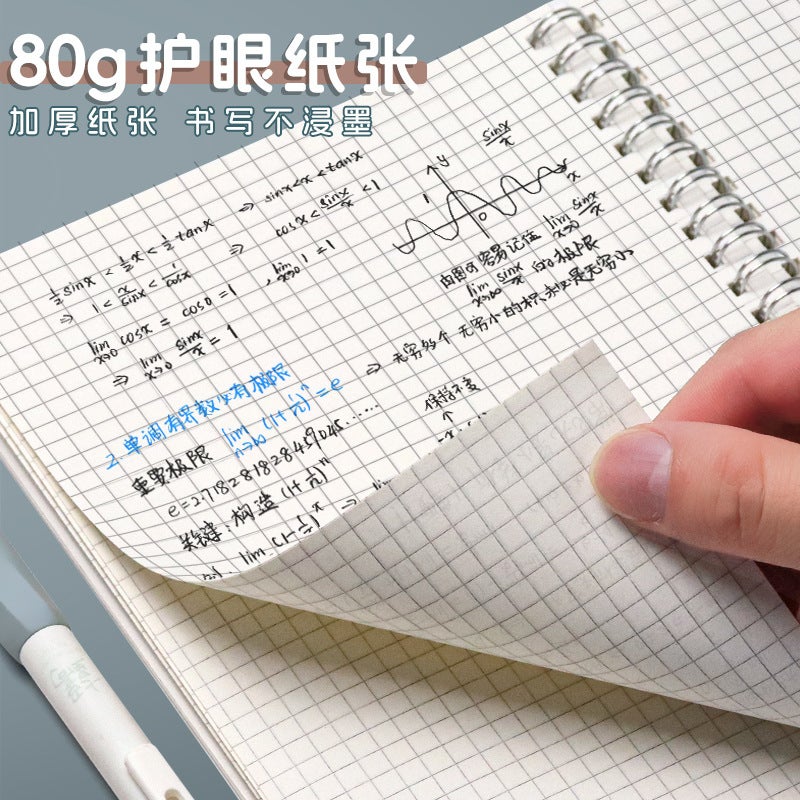 80g护眼纸张
加厚纸张 书写不浸墨
½sinx < ½x < ½tanx ⇒ sinx<x<tanx
⇒ 1 < x/sinx < 1/cosx ⇒ cosx < sinx/x < 1
lim x→0 cosx = cos0 = 1 , lim x→0 1 = 1
⇒ lim x→0 sinx/x = 1
sinx/x
y
1
0
x
由图可容易记住 lim x→0 sinx/x
lim x→∞ sinx/x 的极限
⇒ 无穷多个 无穷小的积未必是无穷小
2. 单调有界数必有极限
重要极限 lim n→∞ (1+1/n)ⁿ = e
e=2.718281828459045......
关键:构造(1+1/n)ⁿ
保持不变
↑
lim (1-1/x)ˣ ⇒ lim